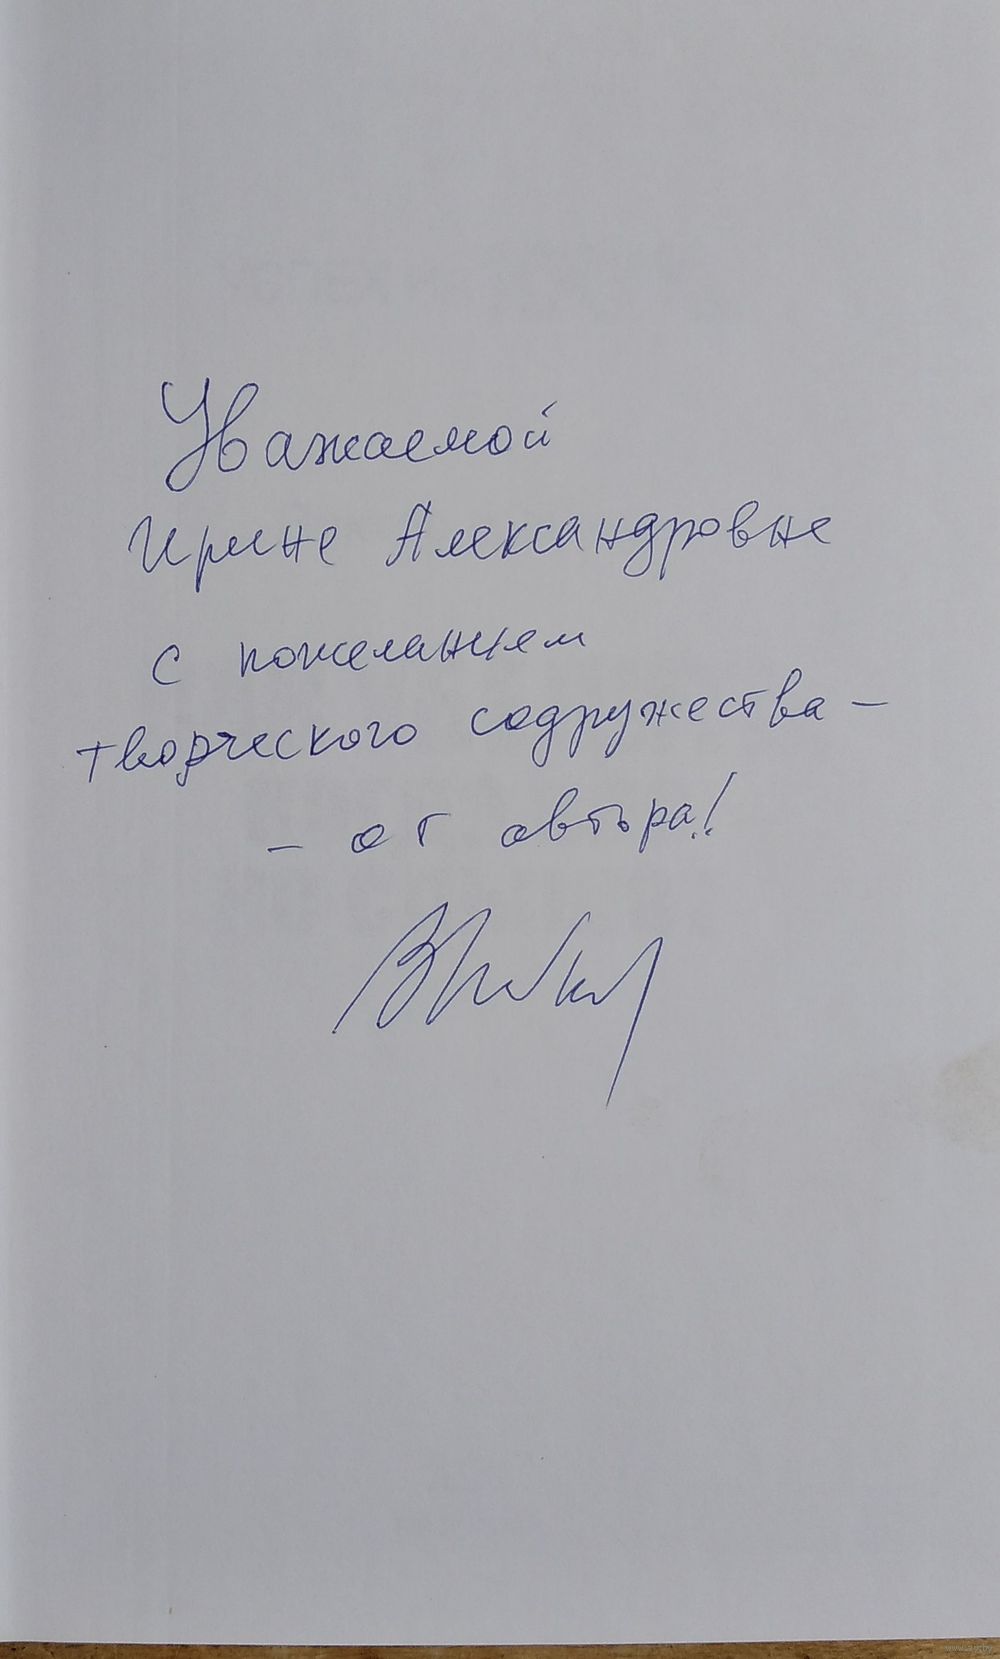 Уважаемой
Ирине Александровне
с пожеланием
творческого содружества –
– от автора!